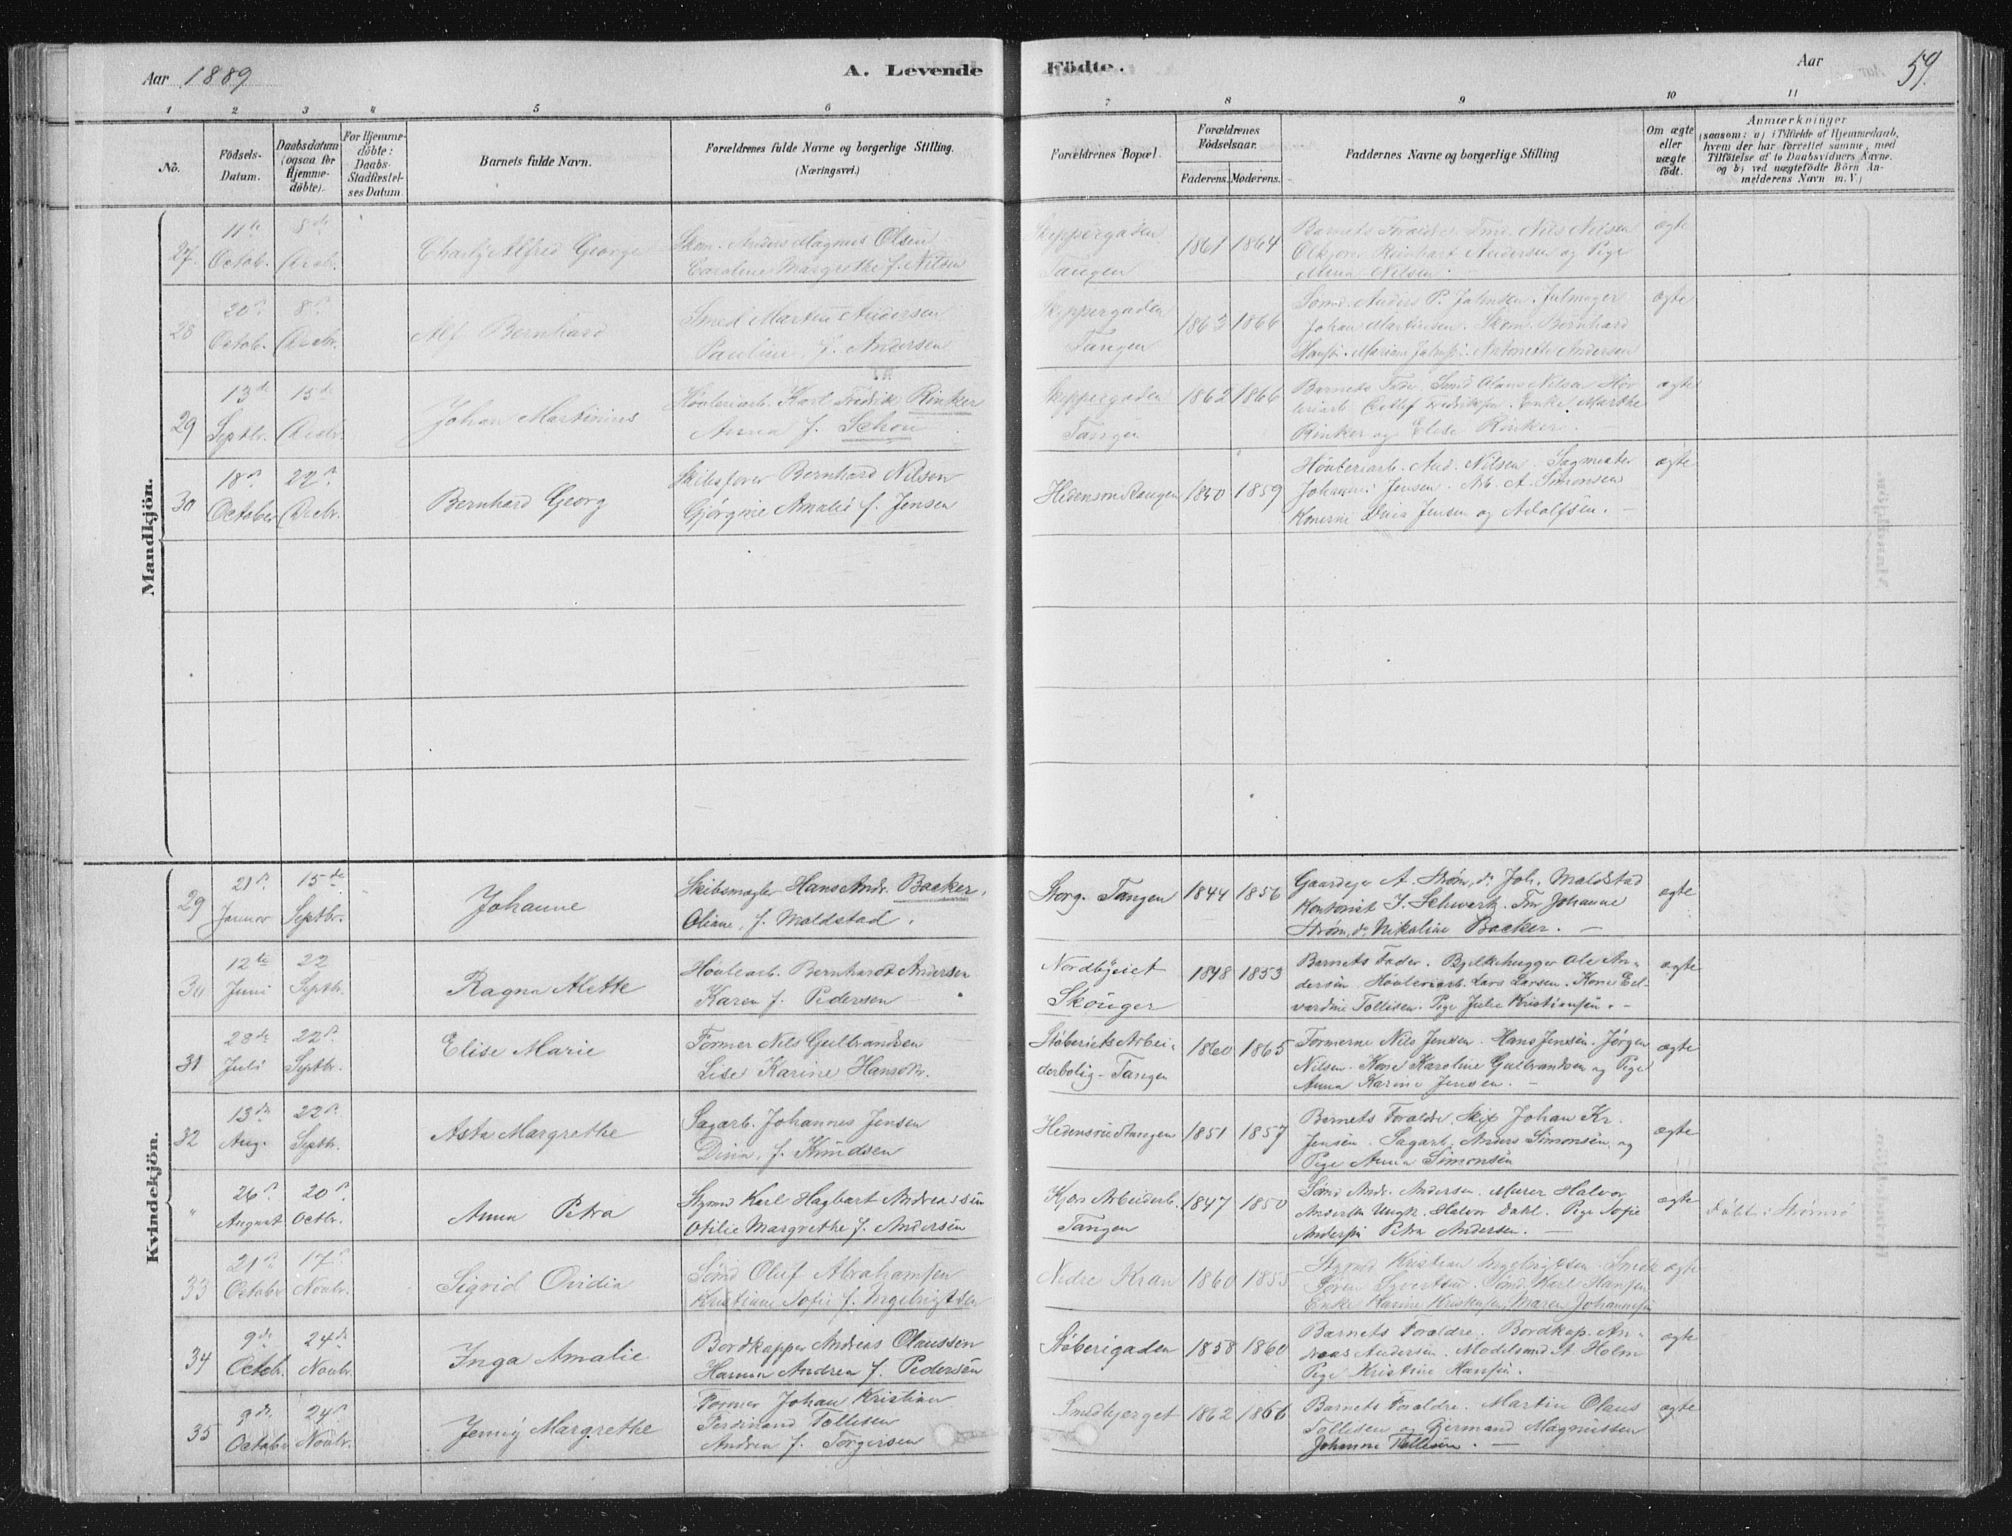 Aar 1889
A. Levende Födte.
Aar
59.
1 2 3 4 5 6 7 8 9 10 11
No.
Födsels-Datum.
Daabsdatum (ogsaa for Hjemme-döbte).
For Hjemme-döbte: Daabs-Stadfæstel-ses Datum.
Barnets fulde Navn.
Forældrenes fulde Navne og borgerlige Stilling. (Næringsvei.)
Forældrenes Bopæl.
Forældrenes Födselsaar.
Faderens. Moderens.
Faddernes Navne og borgerlige Stilling
Om ægte eller uægte födt.
Anmærkninger
(saasom: a) i Tilfælde af Hjemmedaab, hvem der har forrettet samme, med Tilföielse af to Daabsvidners Navne, og b) ved uægtefödte Börn An-melderens Navn m. V.)
Mandkjön.
27. 11te Octob. 8de Decbr. Charly Alfred George
Skom. Anders Magnus Olsen
Caroline Margrethe f. Nilsen
Skippergaden Tangen
1861 1864
Barnets Forældre Smd. Nils Nilsen
Reinhart Andersen og Pige
Nilsen.
ægte
28 20d Octob. 8d Decbr. Alf Bernhard
Smed Martin Andersen
Pauline f. Andersen
Skippergaden Tangen
1863 1866
Sømd. Anders P. Johnsen.
Johan Martinsen. Skom. Bernhard
Antonette Andersen
ægte
29 13de Septbr. 15de Decbr. Johan Martinius
Høvleriarb. Karl Fredrik Rinker
Anna f. Schou
Skippergaden Tangen
1862 1866
Barnets Fader, Smd Olaus Nilsen Høv
leriarb. Detlef Fredriksen. Enke Marthe
Rinker og Elise Rinker.
ægte
30 18d October 22d Decbr. Bernhard Georg
Bernhard Nilsen
Gjørgine Amalie f. Jensen
Hedensrud Tangen
1850 1859
Høvleriarb. And. Nilsen. Sagmester
Johannes Jensen. Arb. A. Simonsen
Konerne Jensen og Adolfsen. –
ægte
Kvindekjön.
29 21d Januar 15de Septbr. Johanne
Skibsmægler Hans Andr. Backer,
Oliane, f. Moldstad.
Storg. Tangen
1844 1856
Gaardeier A. Strøm, do Joh. Moldstad
Kontorist J. Schwartz. Fru Johanne
Strøm, do Nikoline Backer. –
ægte
30 12te Juni 22 Septbr. Ragna Alette
Høvlearb. Bernhardt Andersen
Karen f. Pedersen
Nordbyeiet Skouger
1848 1853
Barnets Fader. Bjelkehugger Ole An-
dersen. Høvleriarb. Lars Larsen. Kone Ed-
vardine Tollefsen. Pige Julie Kristiansen. –
ægte
31 28de Juli 22d Septbr. Elise Marie
Former Nils Gulbrandsen
Lise Karine Hansdtr.
Støberiets Arbei-derbolig – Tangen
1860 1865
Formerne Nils Jensen. Hans Jensen. Jørgen
Nilsen. Kone Karoline Gulbrandsen og Pige
Anna Karine Jensen. –
ægte
32 13de Aug. 22d Septbr. Asta Margrethe
Sagarb. Johannes Jensen
Dina, f. Knudsen
Hedensrud Tangen
1851 1857
Barnets Forældre, Skip Johan Kr.
Jensen. Sagarb. Anders Simonsen og
Pige Anna Simonsen
ægte
" 26d August 20d Octbr. Anna Petra
Styrmd Karl Hagbart Andreassen
Otilie Margrethe f. Andersen
Kjøs Arbeiderb. Tangen
1847 1850
Sømd Andr. Andersen. Murer Halvor
Andersen Ungk. Halvor Dahl. Pige Sofie
Andersen Petra Andersen. –
ægte
Døbt i Strømsø
33 21d October 17d Novbr. Sigrid Ovidia
Sømd Oluf Abrahamsen
Kristiane Sofie f. Ingebrigtsen
Nedre Kran
1860 1855
Styrmd Kristian Ingebrigtsen. Smed
Søren Syvertsen. Sømd Karl Hansen
Enke Karine Kristensen Maren Johannesen
ægte
34 9de Octobr. 24de Novbr. Inga Amalie
Bordkapper Andreas Olaussen
Hanna Andrea f. Pedersen
Støberigaden
1858 1860
Barnets Forældre. Bordkap. An-
dreas Andersen. Modelsmd A. Holm
Pige Kristine Hansen.
ægte
35 9de October 24d Novbr. Jenny Margrethe
Former Johan Kristian
Ferdinand Tollefsen
Andrea f. Torgersen
Smedbjerget
1862 1866
Barnets Forældre. Martin Olaus
Tollefsen og Gjermand Magnussen
Johanne Tollefsen. –
ægte